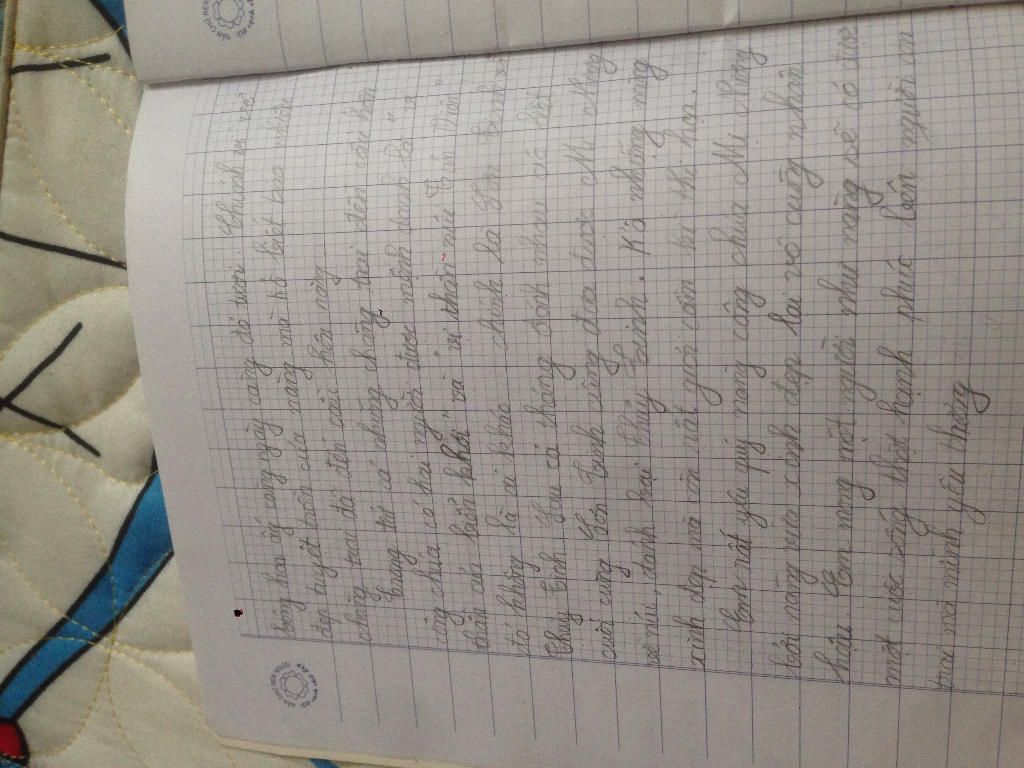 bông hoa ấy càng ngày càng đỏ tươi. Chính vì vẻ
đẹp tuyệt trần của nàng mà hỏ biết bao nhiêu
chàng trai đã đến cầu hôn nàng
Trong tất cả những chàng trai đến cầu hôn
công chúa có hai người được mệnh danh là " vị
thần cai biển khơi " và " vị thần núi Tản Viên"
đó không là ai khác chính là Sơn Tinh và
Thủy Tinh. Sau cả tháng đánh nhau ác liệt
cuối cùng Sơn Tinh cũng đưa được Mị Nương
về núi, đánh bại Thủy Tinh. Kó những nàng
xinh đẹp mà còn rất giỏi cầm kì thi họa.
Em rất yêu quý nàng công chúa Mị Nương
bởi nàng vừa xinh đẹp lại vô cùng nhân
hậu. Em mong một người như nàng sẽ có được
một cuộc sống thật hạnh phúc bên người con
trai mà mình yêu thương